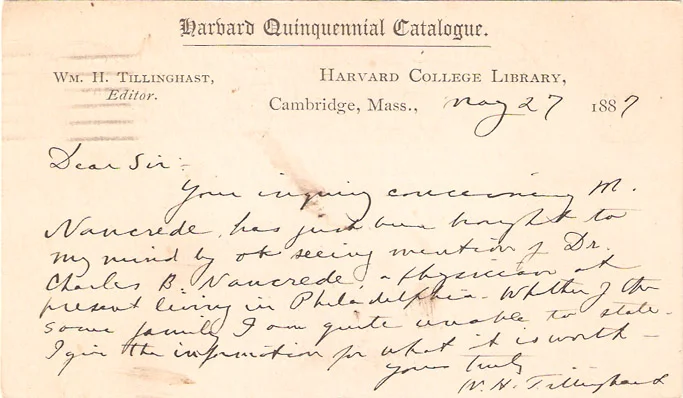 Harvard Quinquennial Catalogue.
WM. H. TILLINGHAST,
Editor.
HARVARD COLLEGE LIBRARY,
Cambridge, Mass., May 27 1887
Dear Sir:-
Your inquiry concerning M.
Nancrede, has just been brought to
my mind by seeing mention of Dr.
Charles B. Nancrede, a physician at
present living in Philadelphia. Whether of the
same family I am quite unable to state.
I give the information for what it is worth -
Yours truly
W. H. Tillinghast